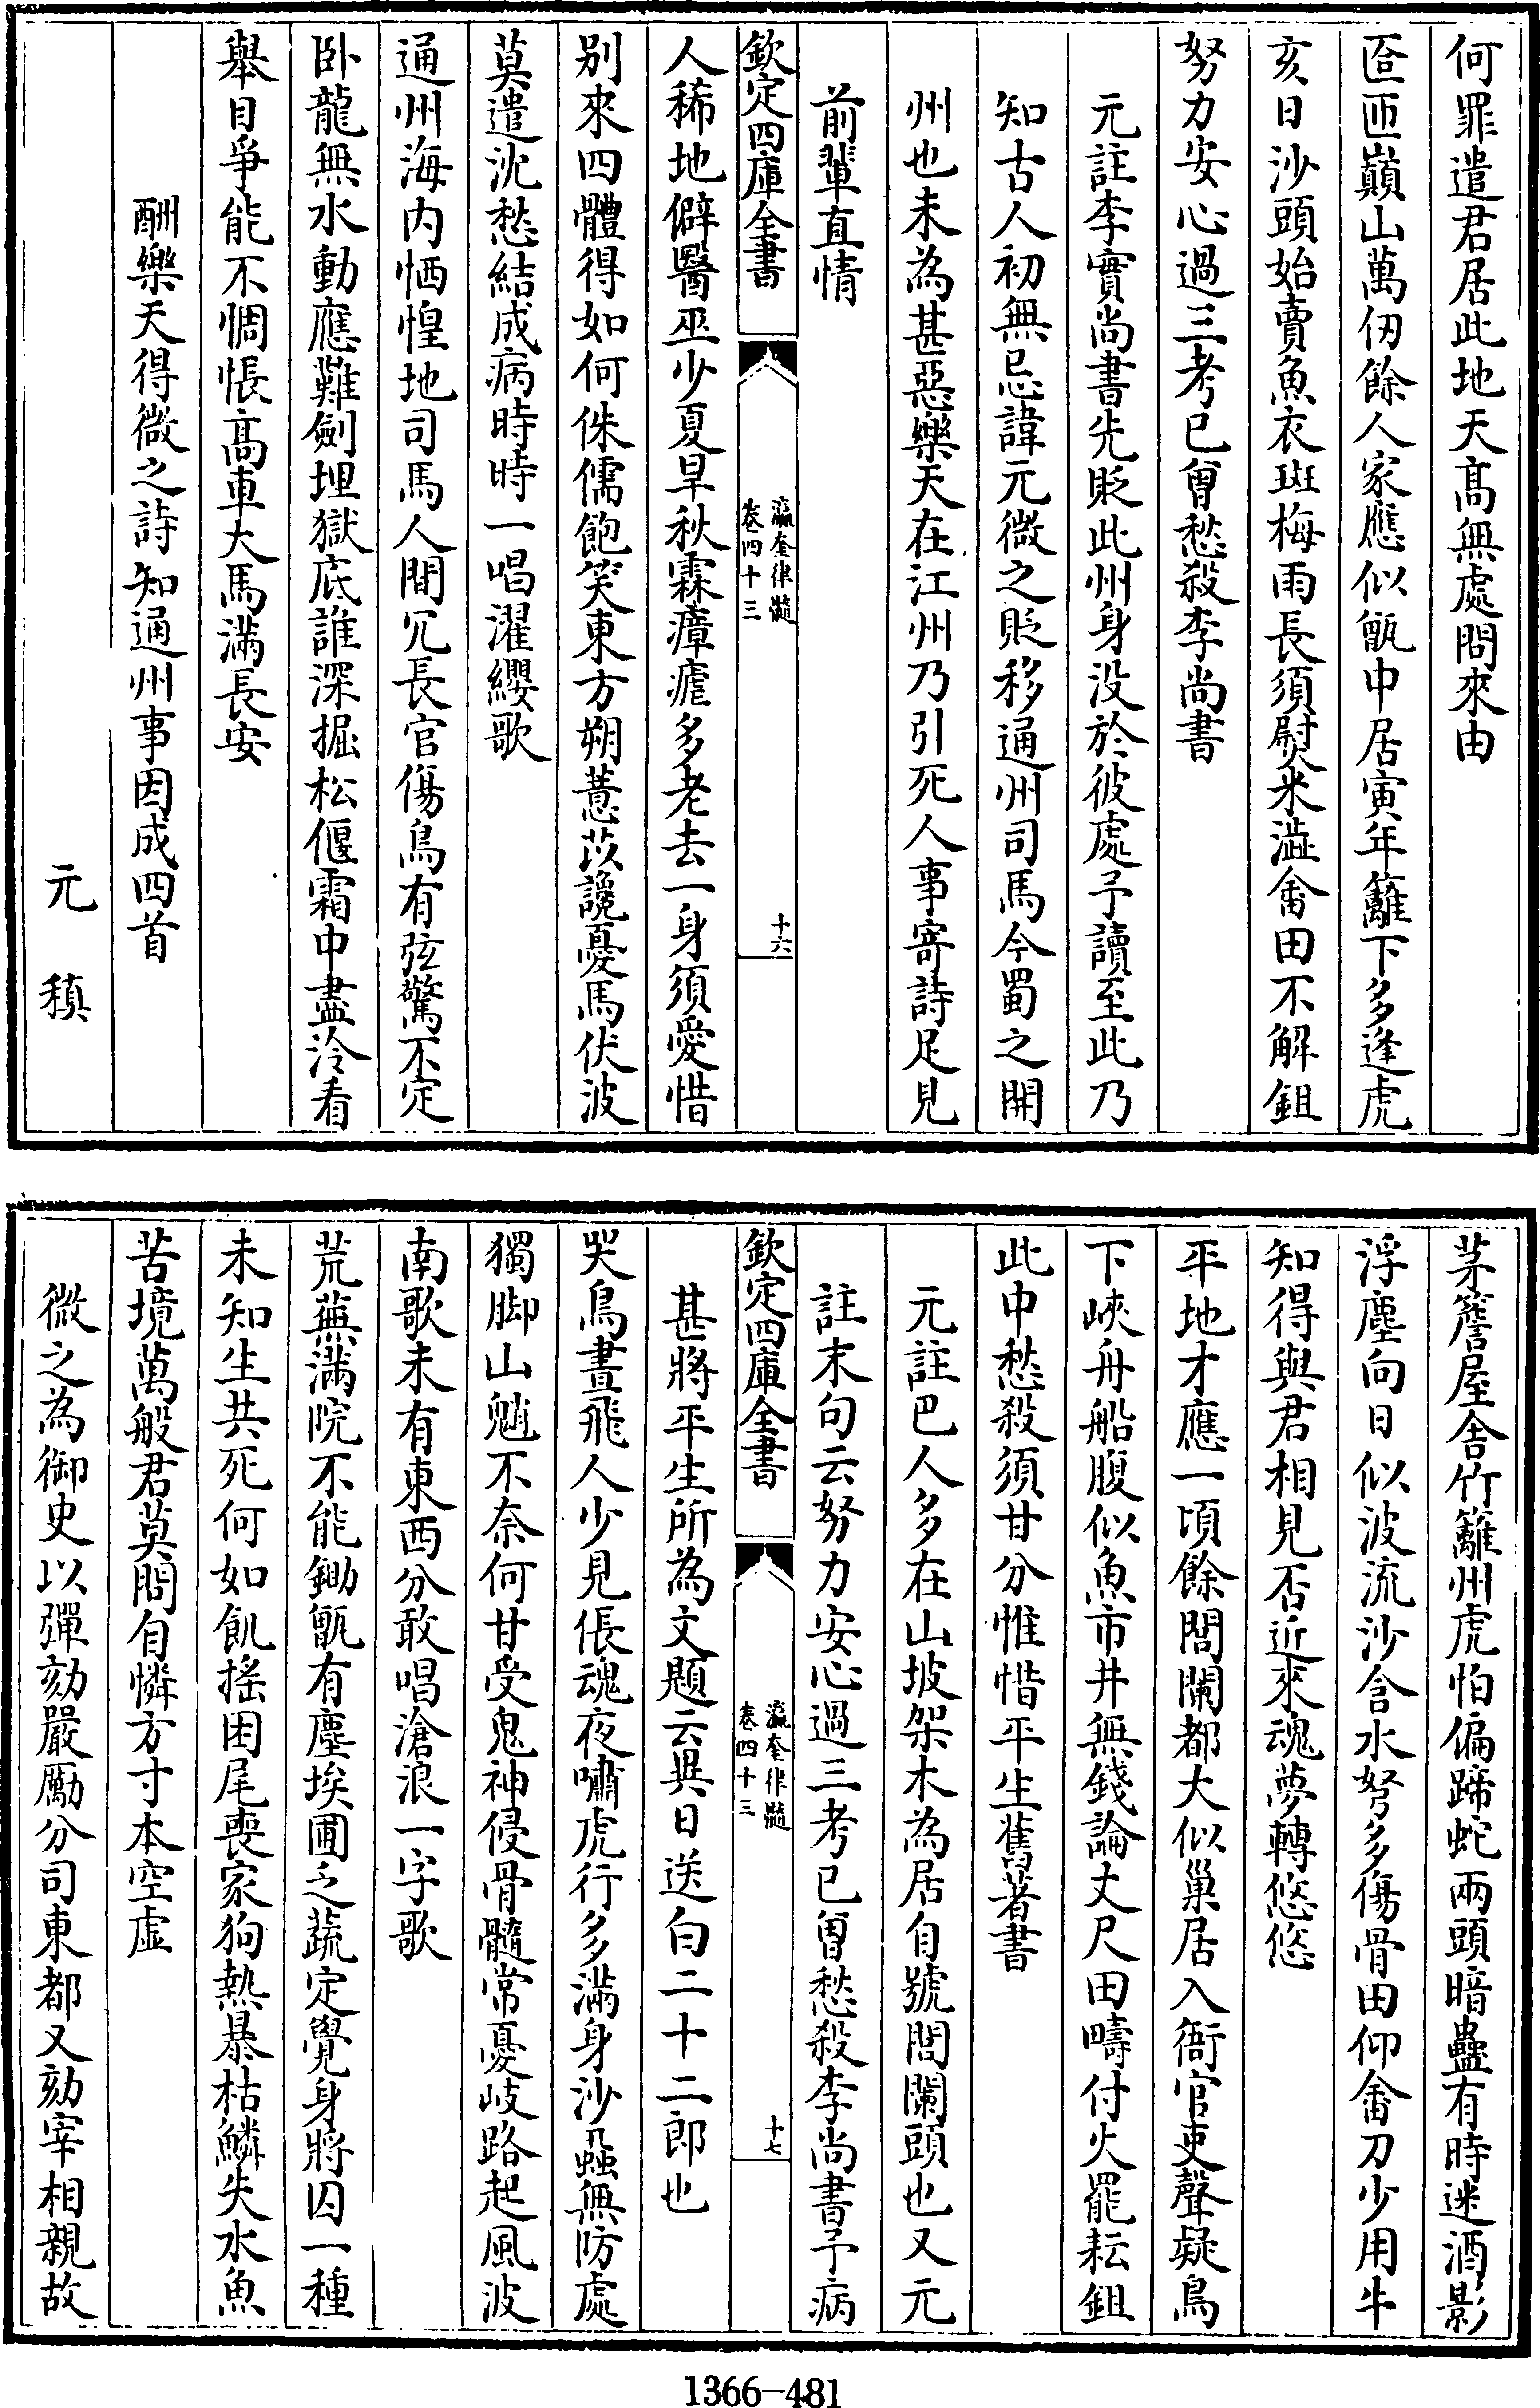 何罪遣君居此地天髙無處問來由
匼匝巔山萬仞餘人家應似甑中居寅年籬下多逢虎
亥日沙頭始賣魚衣斑梅雨長須熨米澁畬田不解鉏
努力安心過三考已曾愁殺李尚書
元註李實尚書先貶此州身没於彼處予讀至此乃
知古人初無忌諱元微之貶移通州司馬今蜀之開
州也未為甚惡樂天在江州乃引死人事寄詩足見
前輩直情
欽定四庫全書
瀛奎律髓
卷四十三
十六
人稀地僻醫巫少夏旱秋霖瘴瘧多老去一身須愛惜
别來四體得如何侏儒飽笑東方朔薏苡讒憂馬伏波
莫遣沈愁結成病時時一唱濯纓歌
通州海内恓惶地司馬人間冗長官傷鳥有弦驚不定
卧龍無水動應難劍埋獄底誰深掘松偃霜中盡冷看
舉目爭能不惆悵髙車大馬滿長安
酬樂天得微之詩知通州事因成四首
元稹
茅簷屋舍竹籬州虎怕偏蹄蛇兩頭暗蠱有時迷酒影
浮塵向日似波流沙含水弩多傷骨田仰畬刀少用牛
知得與君相見否近來魂夢轉悠悠
平地才應一頃餘閤闌都大似巢居入衙官吏聲疑鳥
下峽舟船腹似魚市井無錢論丈尺田疇付火罷耘鉏
此中愁殺須甘分惟惜平生舊著書
元註巴人多在山坡架木為居自號閤闌頭也又元
註末句云努力安心過三考已曾愁殺李尚書予病
欽定四庫全書
瀛奎律髓
卷四十三
十七
甚將平生所為文題云異日送白二十二郎也
哭鳥晝飛人少見倀魂夜嘯虎行多滿身沙蝨無防處
獨脚山魈不奈何甘受鬼神侵骨髓常憂岐路起風波
南歌未有東西分敢唱滄浪一字歌
荒蕪滿院不能鋤甑有塵埃圃乏蔬定覺身將囚一種
未知生共死何如飢搖困尾喪家狗熱暴枯鱗失水魚
苦境萬般君莫問自憐方寸本空虚
微之為御史以彈劾嚴勵分司東都又劾宰相親故
1366-481